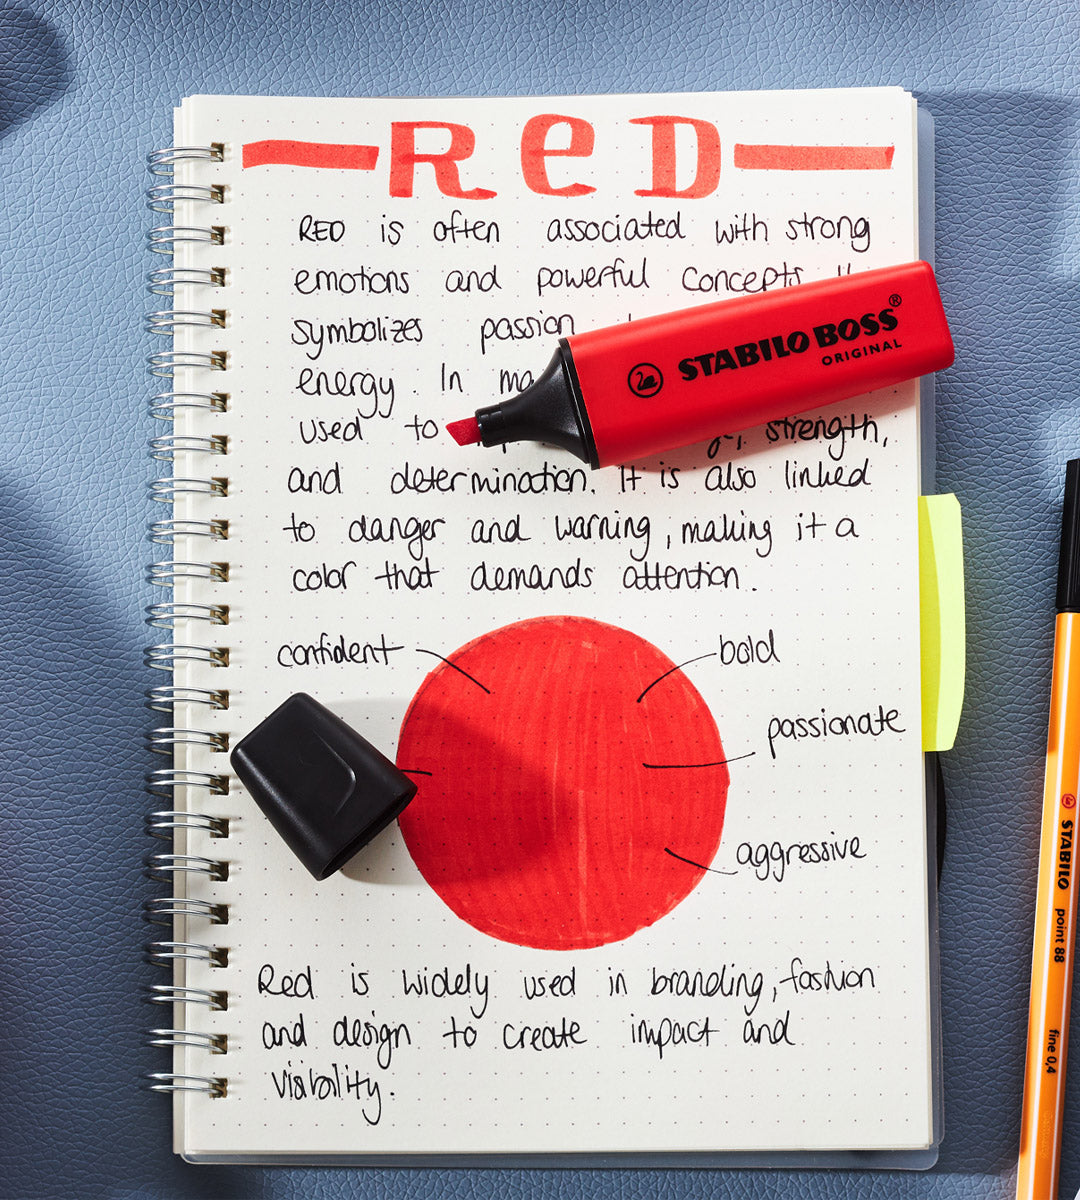 ReD
RED is often associated with strong
emotions and powerful concepts.
symbolizes passion
energy. In
used to strength,
and determination. It is also linked
to danger and warning, making it a
color that demands attention.
STABILO BOSS®
ORIGINAL
confident
bold
passionate
aggressive
Red is widely used in branding, fashion
and design to create impact and
visibility.
STABILO point 88 fine 0,4